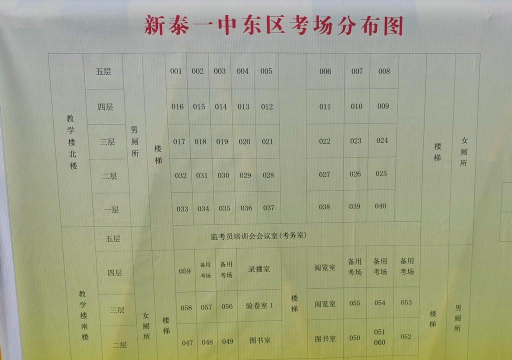 新泰一中东区考场分布图
教学楼北楼
五层 001 002 003 004 005 006 007 008
四层 016 015 014 013 012 011 010 009
男厕所 三层 楼梯 017 018 019 020 021 022 023 024 楼梯 女厕所
二层 032 031 030 029 028 027 026 025
一层 033 034 035 036 037 038 039 040
教学楼南楼
五层 监考员培训会会议室(考务室)
四层 059 备用考场 备用考场 录播室 阅览室 备用考场 备用考场 备用考场
女厕所 三层 楼梯 058 057 056 验卷室1 楼梯 阅览室 055 054 053 楼梯 男厕所
二层 047 048 049 图书室 图书室 050 051 060 052